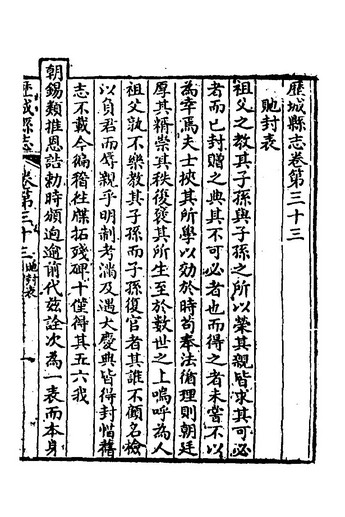 歷城縣志卷第三十三
貤封表
祖父之教其子孫與子孫之所以榮其親皆求其可必
者而已封贈之典其不可必者也而得之者未嘗不以
為幸焉夫士挾其所學以効於時苟奉法循理則朝廷
厚其糈崇其秩復褒其所生至於數世之上嗚呼為人
祖父孰不樂教其子孫而子孫復官者其誰不顧名檢
以負君而辱親乎明制考滿及遇大慶典皆得封惜舊
志不載今徧稽往牒拓殘碑十僅得其五六我
朝錫類推恩誥勅時頒迥逾前代茲詮次為一表而本身
歷城縣志 卷第三十三 貤封表 一